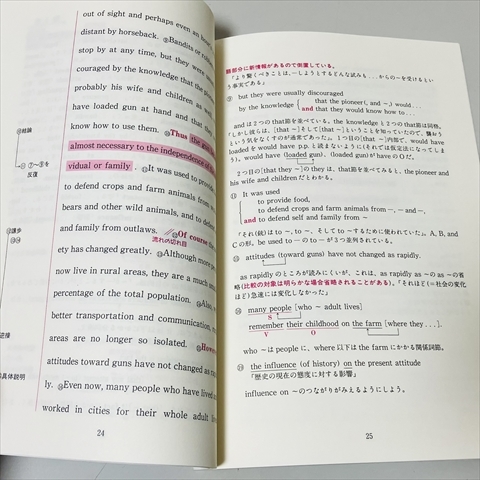 out of sight and perhaps even an
distant by horseback. ⑨Bandits or
stop by at any time, but they were
couraged by the knowledge that the
probably his wife and children as
have loaded gun at hand and that
know how to use them. ⑩Thus the gun
almost necessary to the independence of
vidual or family. ⑪It was used to provide
to defend crops and farm animals from
bears and other wild animals, and to defend
and family from outlaws. ⑫Of course the
流れの切れ目
ety has changed greatly. ⑬Although more
now live in rural areas, they are a much
percentage of the total population. ⑭Also,
better transportation and communication,
areas are no longer so isolated. ⑮However
attitudes toward guns have not changed as
ly. ⑯Even now, many people who have lived
worked in cities for their whole adult
⑩結論
⑪ ⑦~⑨を
反復
⑫譲歩
⑬⑭
逆接
具体説明
24
題部分に新情報があるので倒置している。
「より驚くべきことは,ーしようとするどんな試みも...からの~を受けるとい
う事実である」。
⑦ but they were usually discouraged
by the knowledge that the pioneer(, and ~) would...
and that they would know how to...
and は2つの that 節を並べている。the knowledge と2つの that 節は同格。
「しかし彼らは,[that ~] そして [that ~] ということを知っていたので,襲おう
という気をなくすのが通常であった」。1つ目の [that ~] 内部で,would have
would have を have p.p. と読まないように(それでは仮定法になってしま
う)。would have (loaded gun)。(loaded gun) が have の O だ。
2つ目の [that they ~] の they は,that 節を並べてみると,the pioneer and
his wife and children だとわかる。
⑪ It was used
to provide food,
to defend crops and farm animals from ー, ー, and ー,
and to defend self and family from ~
「それ(銃)は to ~, to ~, そして to ~するために使われていた」。A, B, and
C の形。be used to ー の to ー が3つ並列されている。
⑮ attitudes (toward guns) have not changed as rapidly.
as rapidly のところが読みにくいが,これは,as rapidly as ~ の as ~ の省
略(比較の対象は明らかな場合省略されることがある)。「それほど(=社会の変化
ほど)急速には変化しなかった」
⑯ many people [who ~ adult lives]
S
remember their childhood on the farm [where they...].
V O
who ~ は people に,where 以下は the farm にかかる関係詞節。
⑲ the influence (of history) on the present attitude
「歴史の現在の態度に対する影響」
influence on ~ のつながりがみえるようにしよう。
25